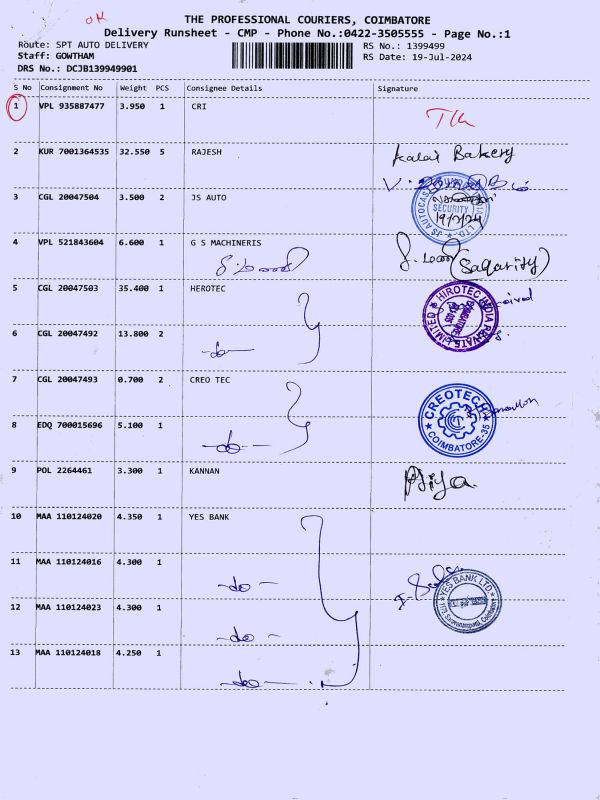 OK
THE PROFESSIONAL COURIERS, COIMBATORE
Delivery Runsheet - CMP - Phone No.:0422-3505555 - Page No.:1
Route: SPT AUTO DELIVERY RS No.: 1399499
Staff: GOWTHAM RS Date: 19-Jul-2024
DRS No.: DCJB139949901
S No Consignment No Weight PCS Consignee Details Signature
1 VPL 935887477 3.950 1 CRI
2 KUR 7001364535 32.550 5 RAJESH Kalai Bakery
3 CGL 20047504 3.500 2 JS AUTO SECURITY 19/7/24
4 VPL 521843604 6.600 1 G S MACHINERIS
5 CGL 20047503 35.400 1 HEROTEC
6 CGL 20047492 13.800 2 -do-
7 CGL 20047493 0.700 2 CREO TEC CREOTECH COIMBATORE-35
8 EDQ 700015696 5.100 1 -do-
9 POL 2264461 3.300 1 KANNAN Priya
10 MAA 110124020 4.350 1 YES BANK
11 MAA 110124016 4.300 1 -do- YES BANK LTD.
12 MAA 110124023 4.300 1 -do-
13 MAA 110124018 4.250 1 -do-